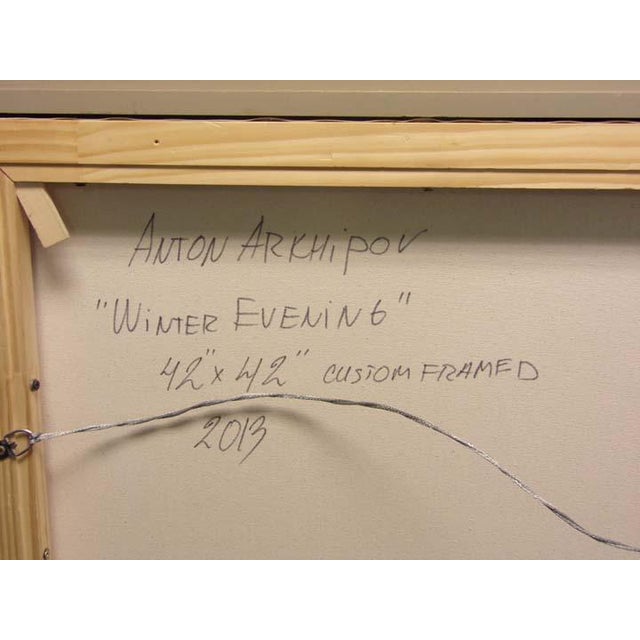 ANTON ARKHIPOV
"WINTER EVENING"
42" x 42" CUSTOM FRAMED
2013